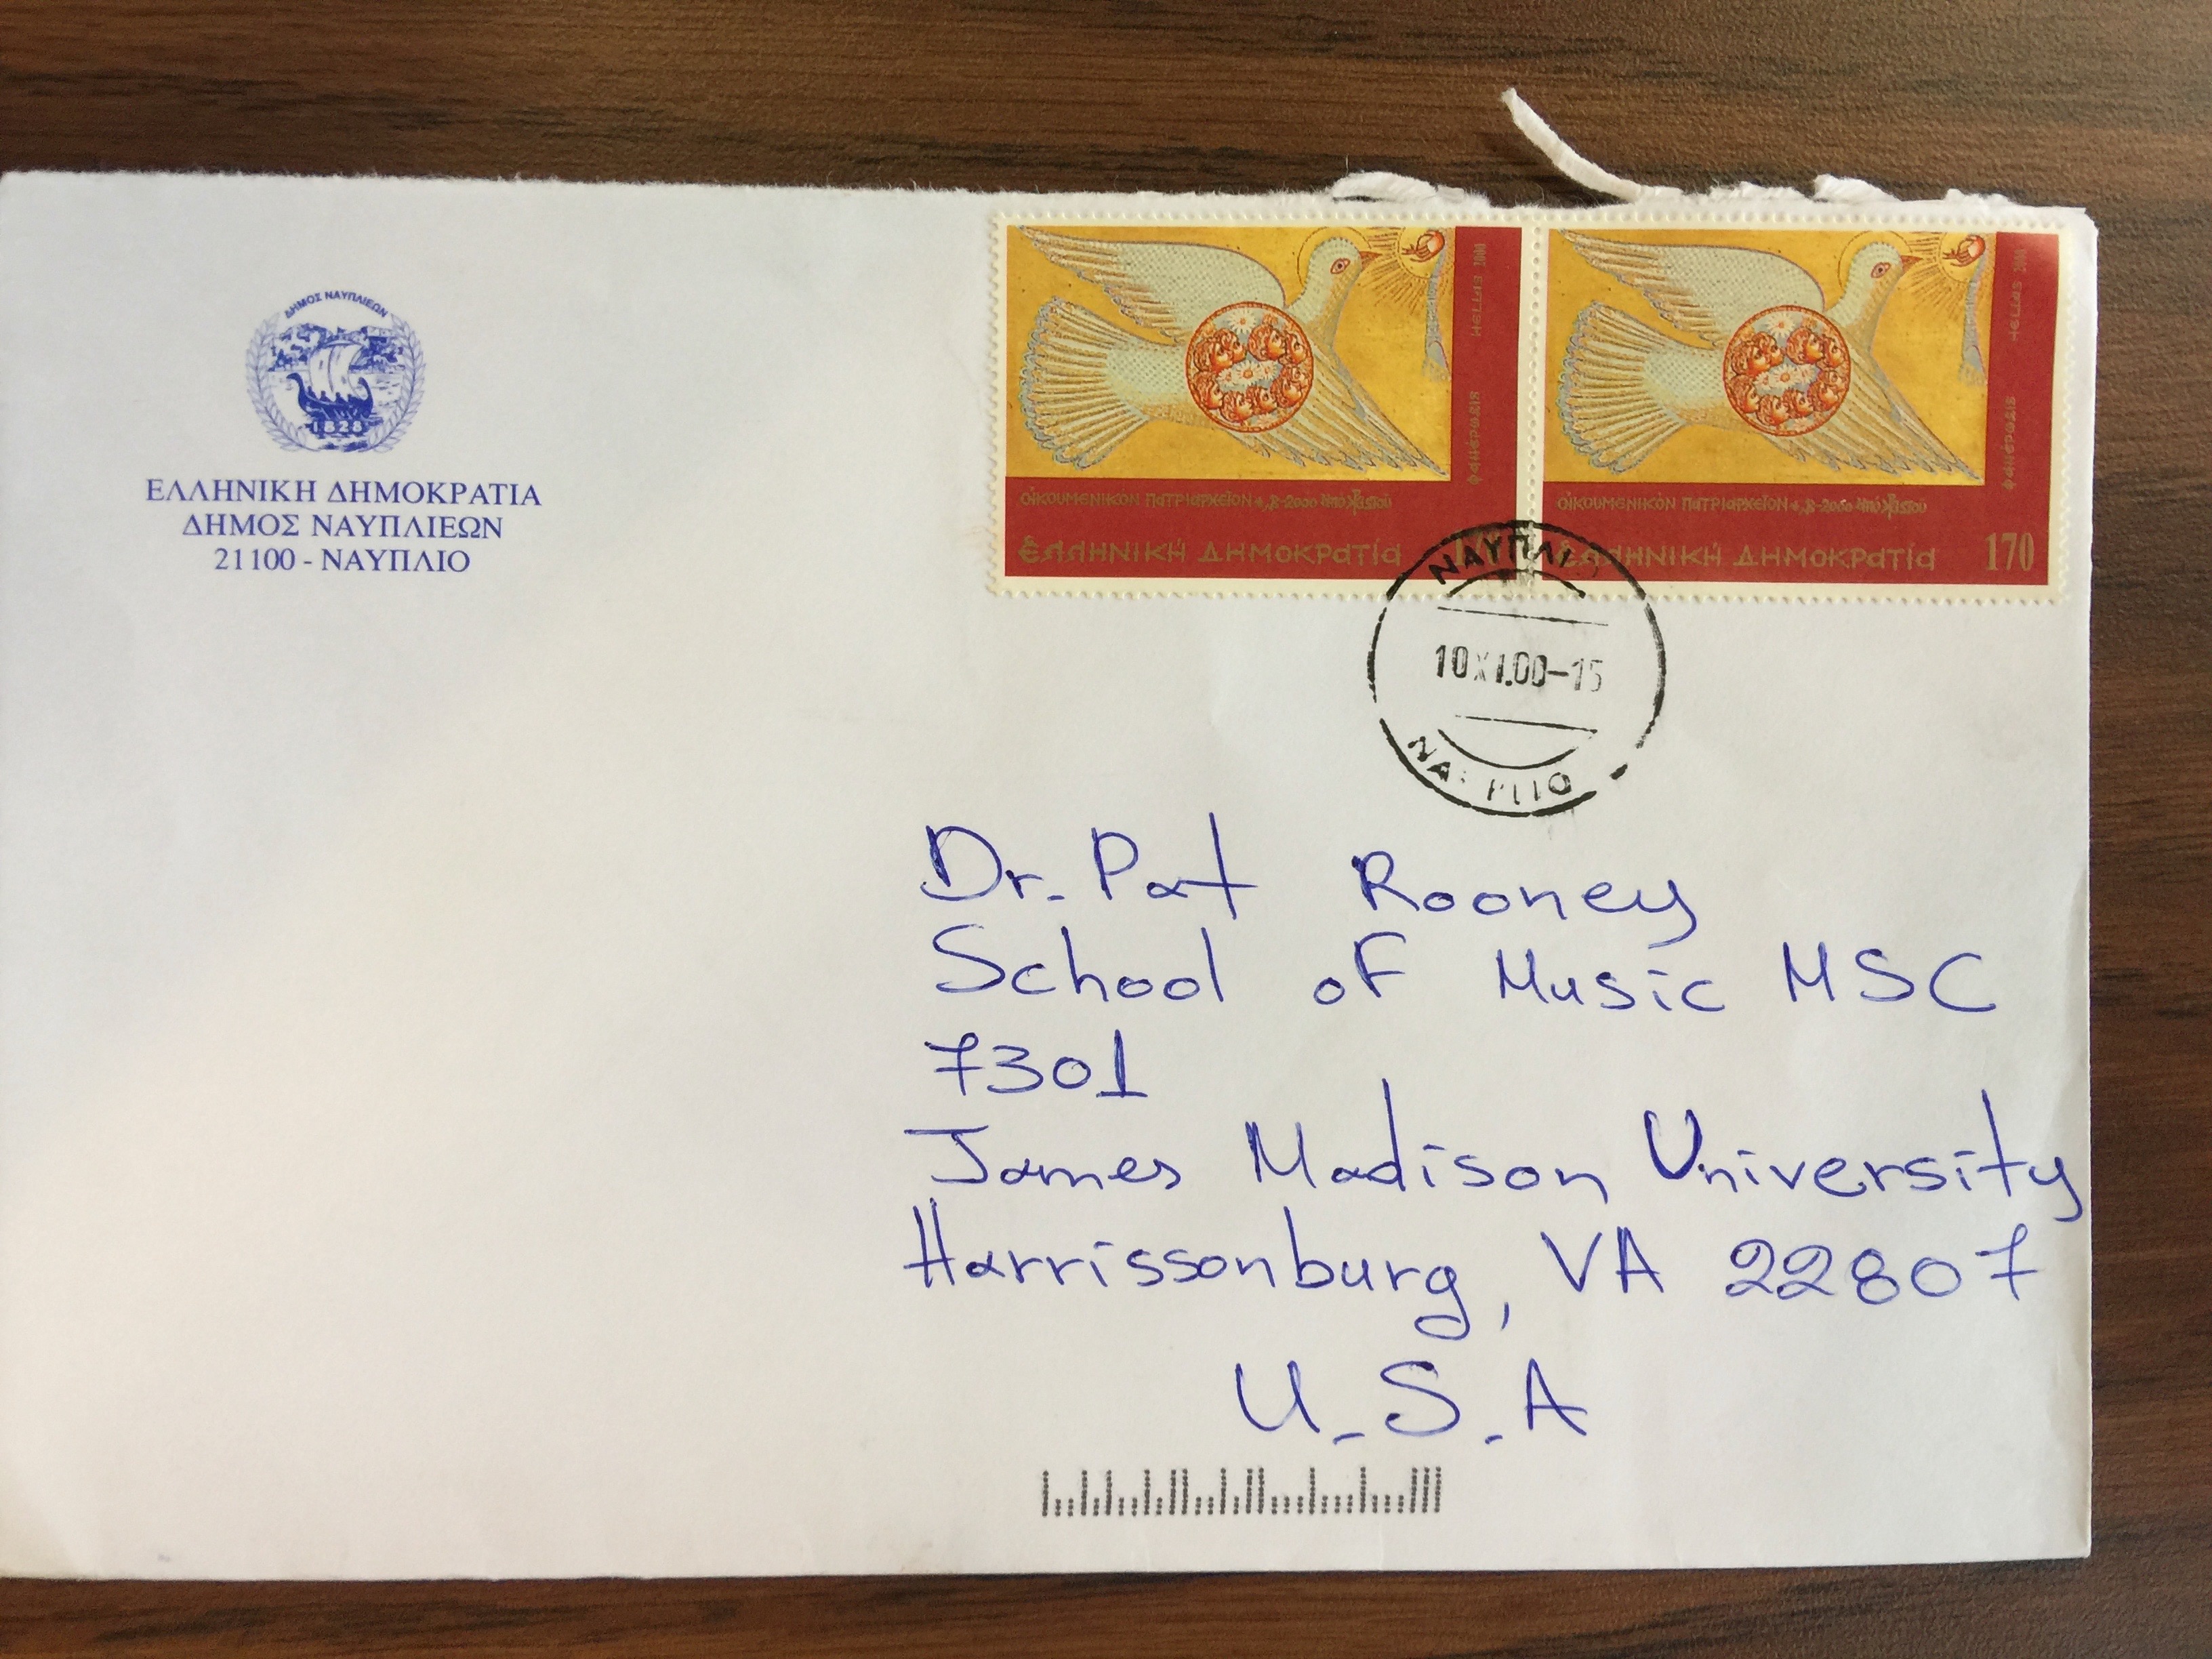 ΔΗΜΟΣ ΝΑΥΠΛΙΕΩΝ
1828
ΕΛΛΗΝΙΚΗ ΔΗΜΟΚΡΑΤΙΑ
ΔΗΜΟΣ ΝΑΥΠΛΙΕΩΝ
21100 - ΝΑΥΠΛΙΟ
HELLAS 2000
ΦΑΝΕΡΩΣΙΣ
ΟἰΚΟΥΜΕΝΙΚὸΝ ΠΑΤΡΙΑΡΧΕῖΟΝ 2000 ἀπὸ Χριστοῦ
ἙΛΛΗΝΙΚὴ ΔΗΜΟΚΡΑΤία
HELLAS 2000
ΦΑΝΕΡΩΣΙΣ
ΟἰΚΟΥΜΕΝΙΚὸΝ ΠΑΤΡΙΑΡΧΕῖΟΝ 2000 ἀπὸ Χριστοῦ
ἙΛΛΗΝΙΚὴ ΔΗΜΟΚΡΑΤία 170
10 XI.00-15
Dr. Pat Rooney
School of Music MSC
7301
James Madison University
Harrissonburg, VA 22807
U.S.A